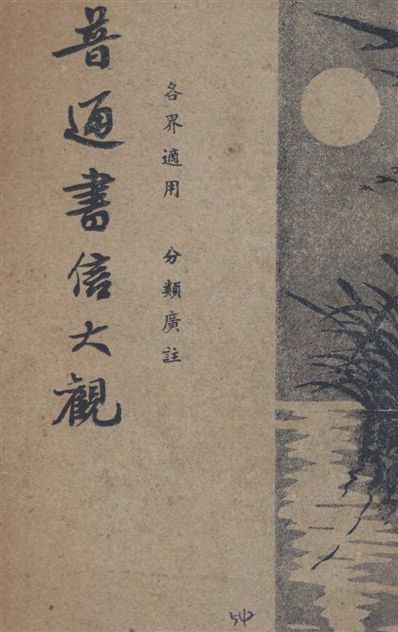 各界適用 分類廣註
普通書信大觀
542